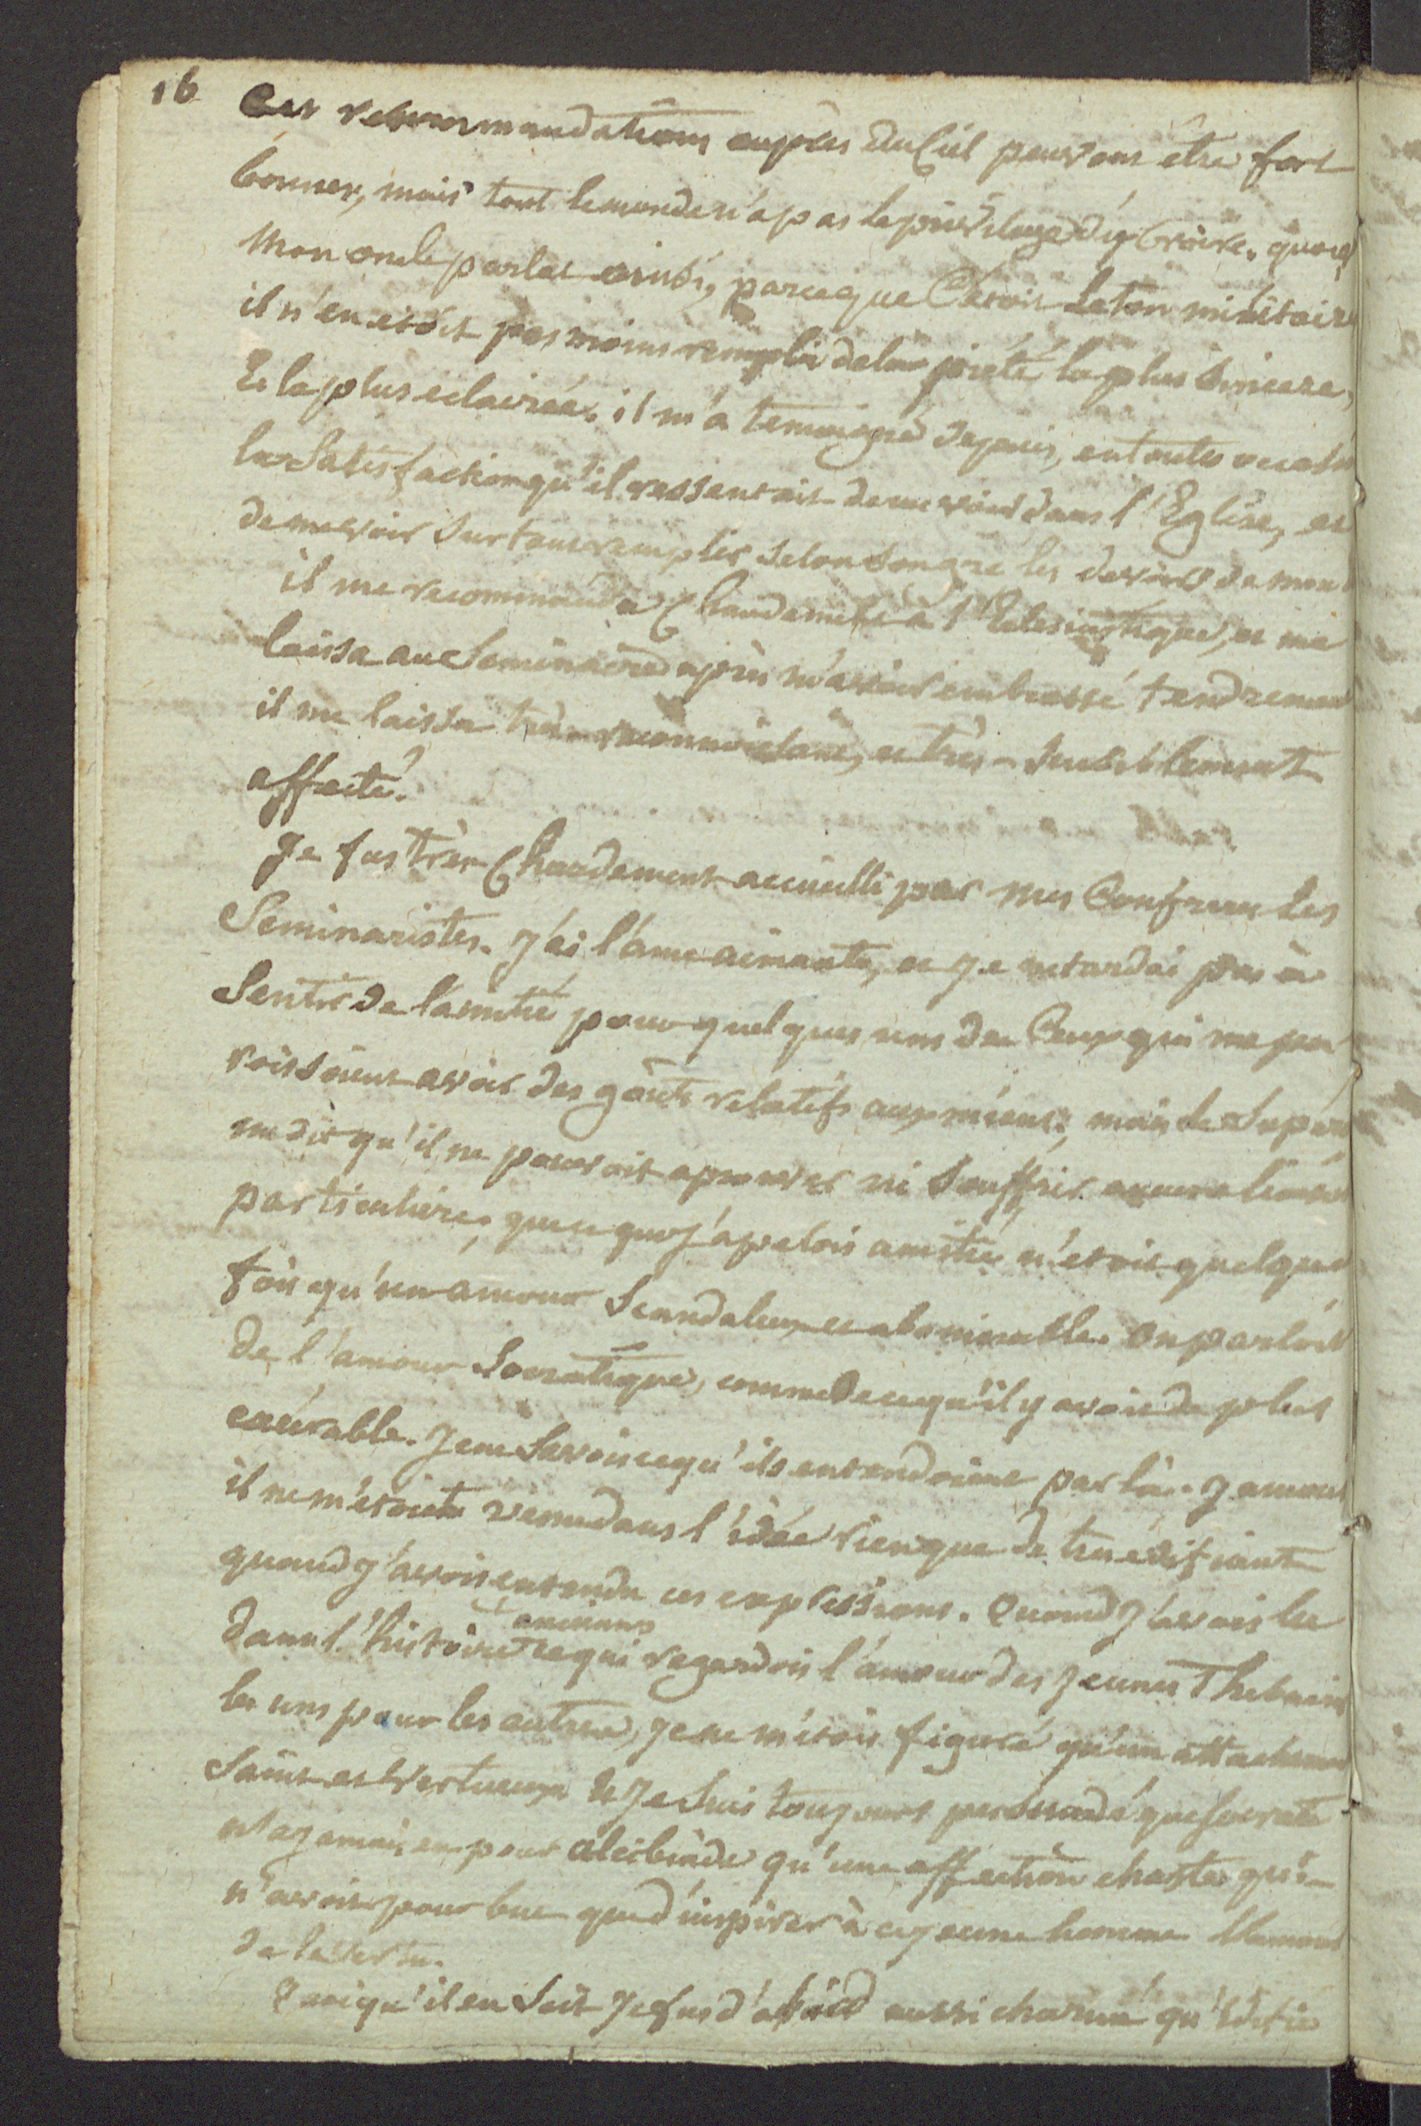 16
Ces recommandations auprès du Ciel peuvent être fort
bonnes, mais tout le monde n'a pas le privilege d'y croire. quoiq
Mon oncle parlat ainsi, parceque C'etoit le ton militaire
il n'en etoit pas moins rempli de la pieté la plus sincere,
Et la plus eclairée. il m'a temoigné depuis, en toutes occasi
la Satisfaction qu'il ressentait de me voir dans l'Eglise, et
de me voir Surtout remplir selon son gré les devoirs de mon
il me recommanda Chaudement à l'Eclesiastique, et me
laissa au Seminaire après m'avoir embrassé tendrement
il me laissa très-reconnoissant, et très-sensiblement
affecté.
Je fus très-Chaudement accueilli par mes Confreres les
Seminaristes. J'ai l'ame aimante, et je ne tardai pas à
Sentir de l'amitié pour quelques uns de Ceux qui me pa
roissoient avoir des goûts relatifs aux miens; mais le Supér
me dit qu'il ne pouvoit aprouver ni Souffrir aucune liaison
particuliere, que ce que j'apelois amitié n'etoit quelque
fois qu'un amour Scandaleux et abominable. On parloit
de l'amour Socratique, comme de ce qu'il y avoit de plus
exécrable. Je ne Savois ce qu'ils entendoient par là. Jamais
il ne m'étoit venu dans l'idée rien que de tres edifiant
quand j'avois entendu ces expressions. Quand j'avois lu
dans l'histoire ancienne ce qui regardoit l'amour des jeunes Thebains
les uns pour les autres, je ne m'étois figuré qu'un attachement
Saint et Vertueux Et Je Suis toujours persuadé que Socrate
n'a jamais eu pour alcibiade qu'une affection chaste qui
n'avoit pour but que d'inspirer à ce jeune homme l'amour
de la Vertu.
Quoiqu'il en Soit Je fus d'abord aussi charmé qu'édifié